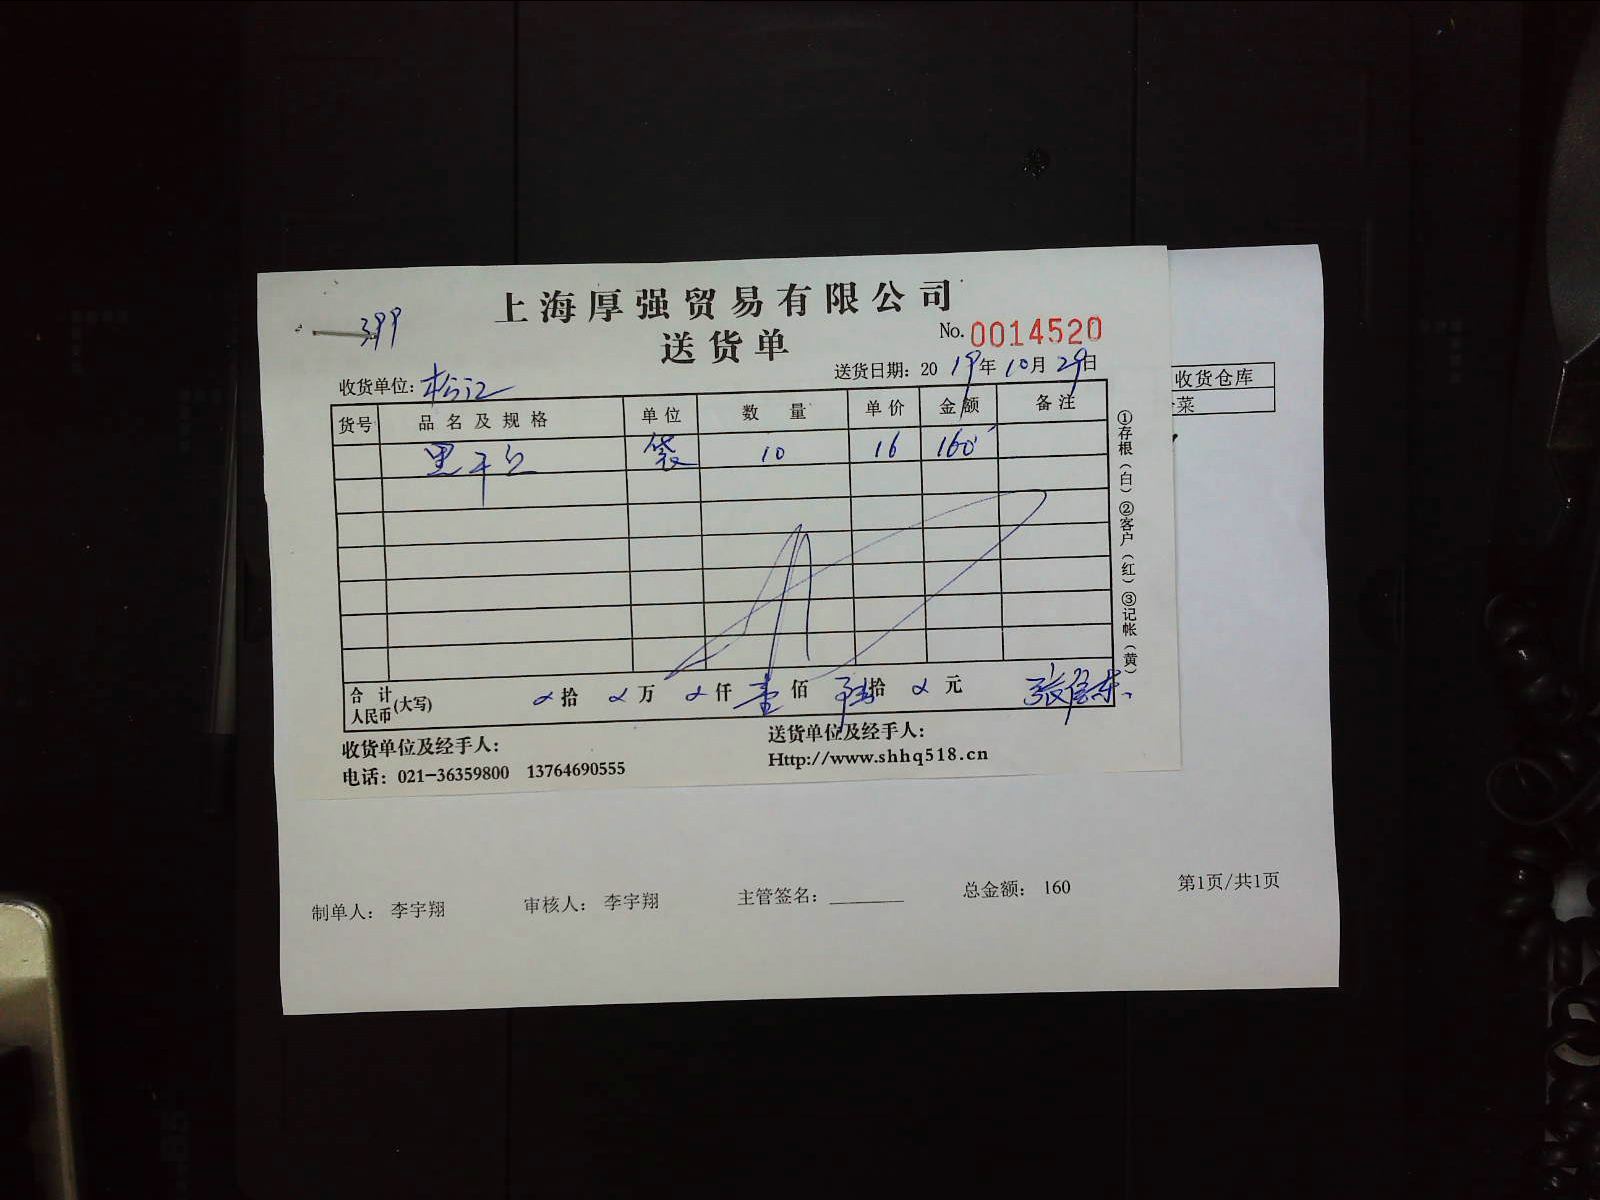 上海厚强贸易有限公司
399
送货单
No. 0014520
收货单位: 松江
送货日期: 2019年10月29日
货号 品名及规格 单位 数量 单价 金额 备注
黑干 袋 10 16 160
合计人民币(大写) 拾 万 仟 壹佰 陆拾 元
①存根(白)②客户(红)③记帐(黄)
收货单位及经手人:
送货单位及经手人:
电话: 021-36359800 13764690555
Http://www.shhq518.cn
收货仓库
菜
制单人: 李宇翔 审核人: 李宇翔 主管签名: 总金额: 160 第1页/共1页